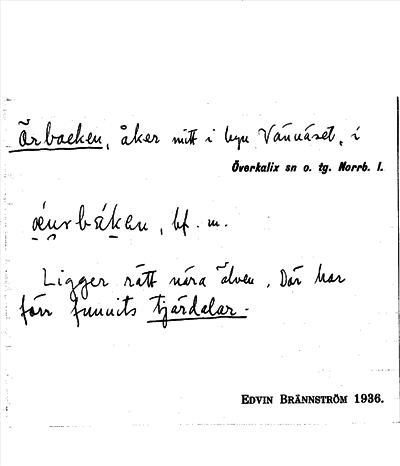 Ärbacken, åker mitt i byn Vännäset, i
Överkalix sn o. tg. Norrb. l.
bf. m.
Ligger rätt nära älven. Där har
förr funnits tjärdalar.
EDVIN BRÄNNSTRÖM 1936.